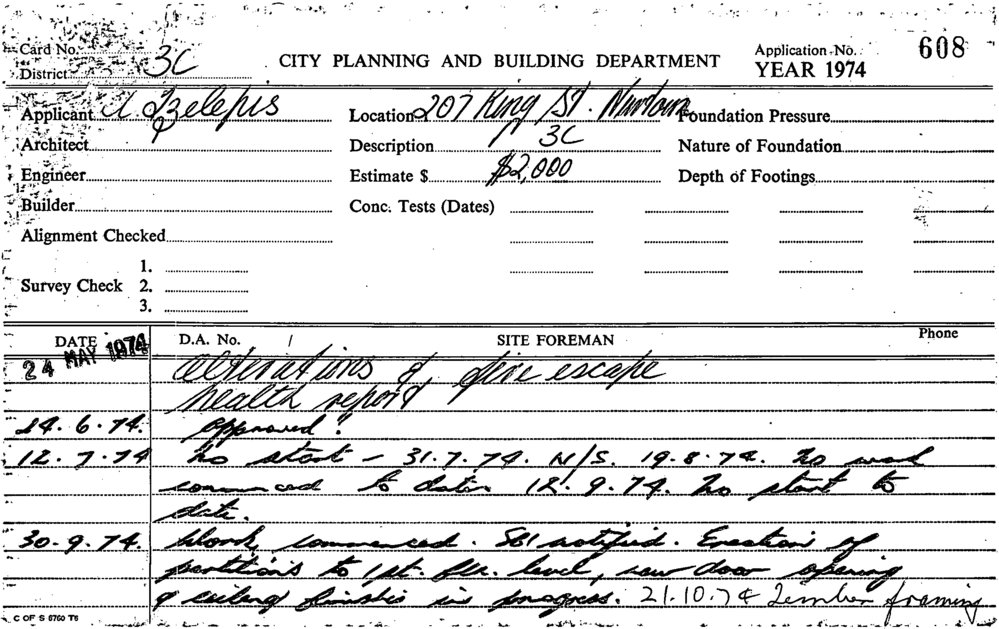 Card No. 3C
District
CITY PLANNING AND BUILDING DEPARTMENT
Application No. 608
YEAR 1974
Applicant Zelepis Location 207 King St. Newtown Foundation Pressure
Architect Description 3C Nature of Foundation
Engineer Estimate $ $2,000 Depth of Footings
Builder Conc. Tests (Dates)
Alignment Checked
1.
Survey Check 2.
3.
DATE D.A. No. / SITE FOREMAN Phone
24 MAY 1974 alterations & fire escape
health report
24.6.74. approved.
12.7.74 No start - 31.7.74. N/S. 19.8.74. No work
commenced to date. 12.9.74. No start to
date.
30.9.74. Work commenced. SBI notified. Erection of
partitions to 1st. flr. level, new door opening
& ceiling finishes in progress. 21.10.74 Timber framing
C OF S 5750 T6